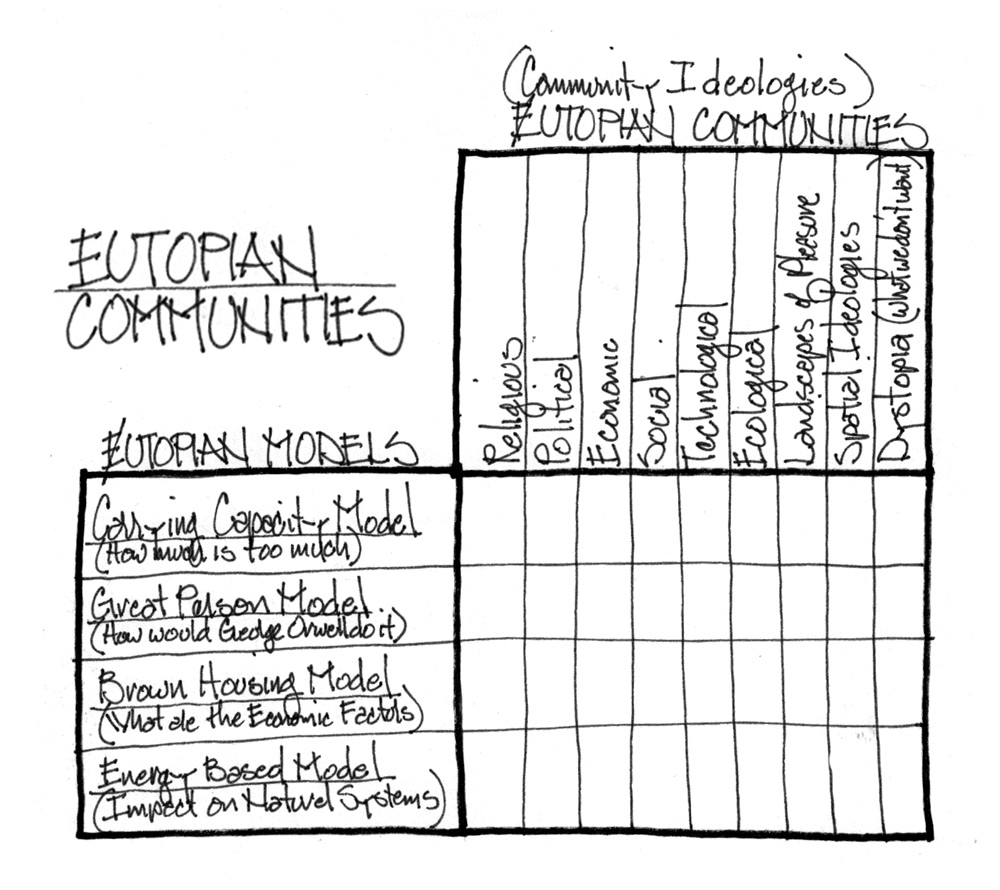 (Community Ideologies)
EUTOPIAN COMMUNITIES
EUTOPIAN
COMMUNITIES
Religious
Political
Economic
Social
Technological
Ecological
Landscapes of Pleasure
Spatial Ideologies
Dystopia (what we don't want)
EUTOPIAN MODELS
Carrying Capacity Model
(How much is too much)
Great Person Model
(How would George Orwell do it)
Brown Housing Model
(What are the Economic Factors)
Energy Based Model
(Impact on Natural Systems)